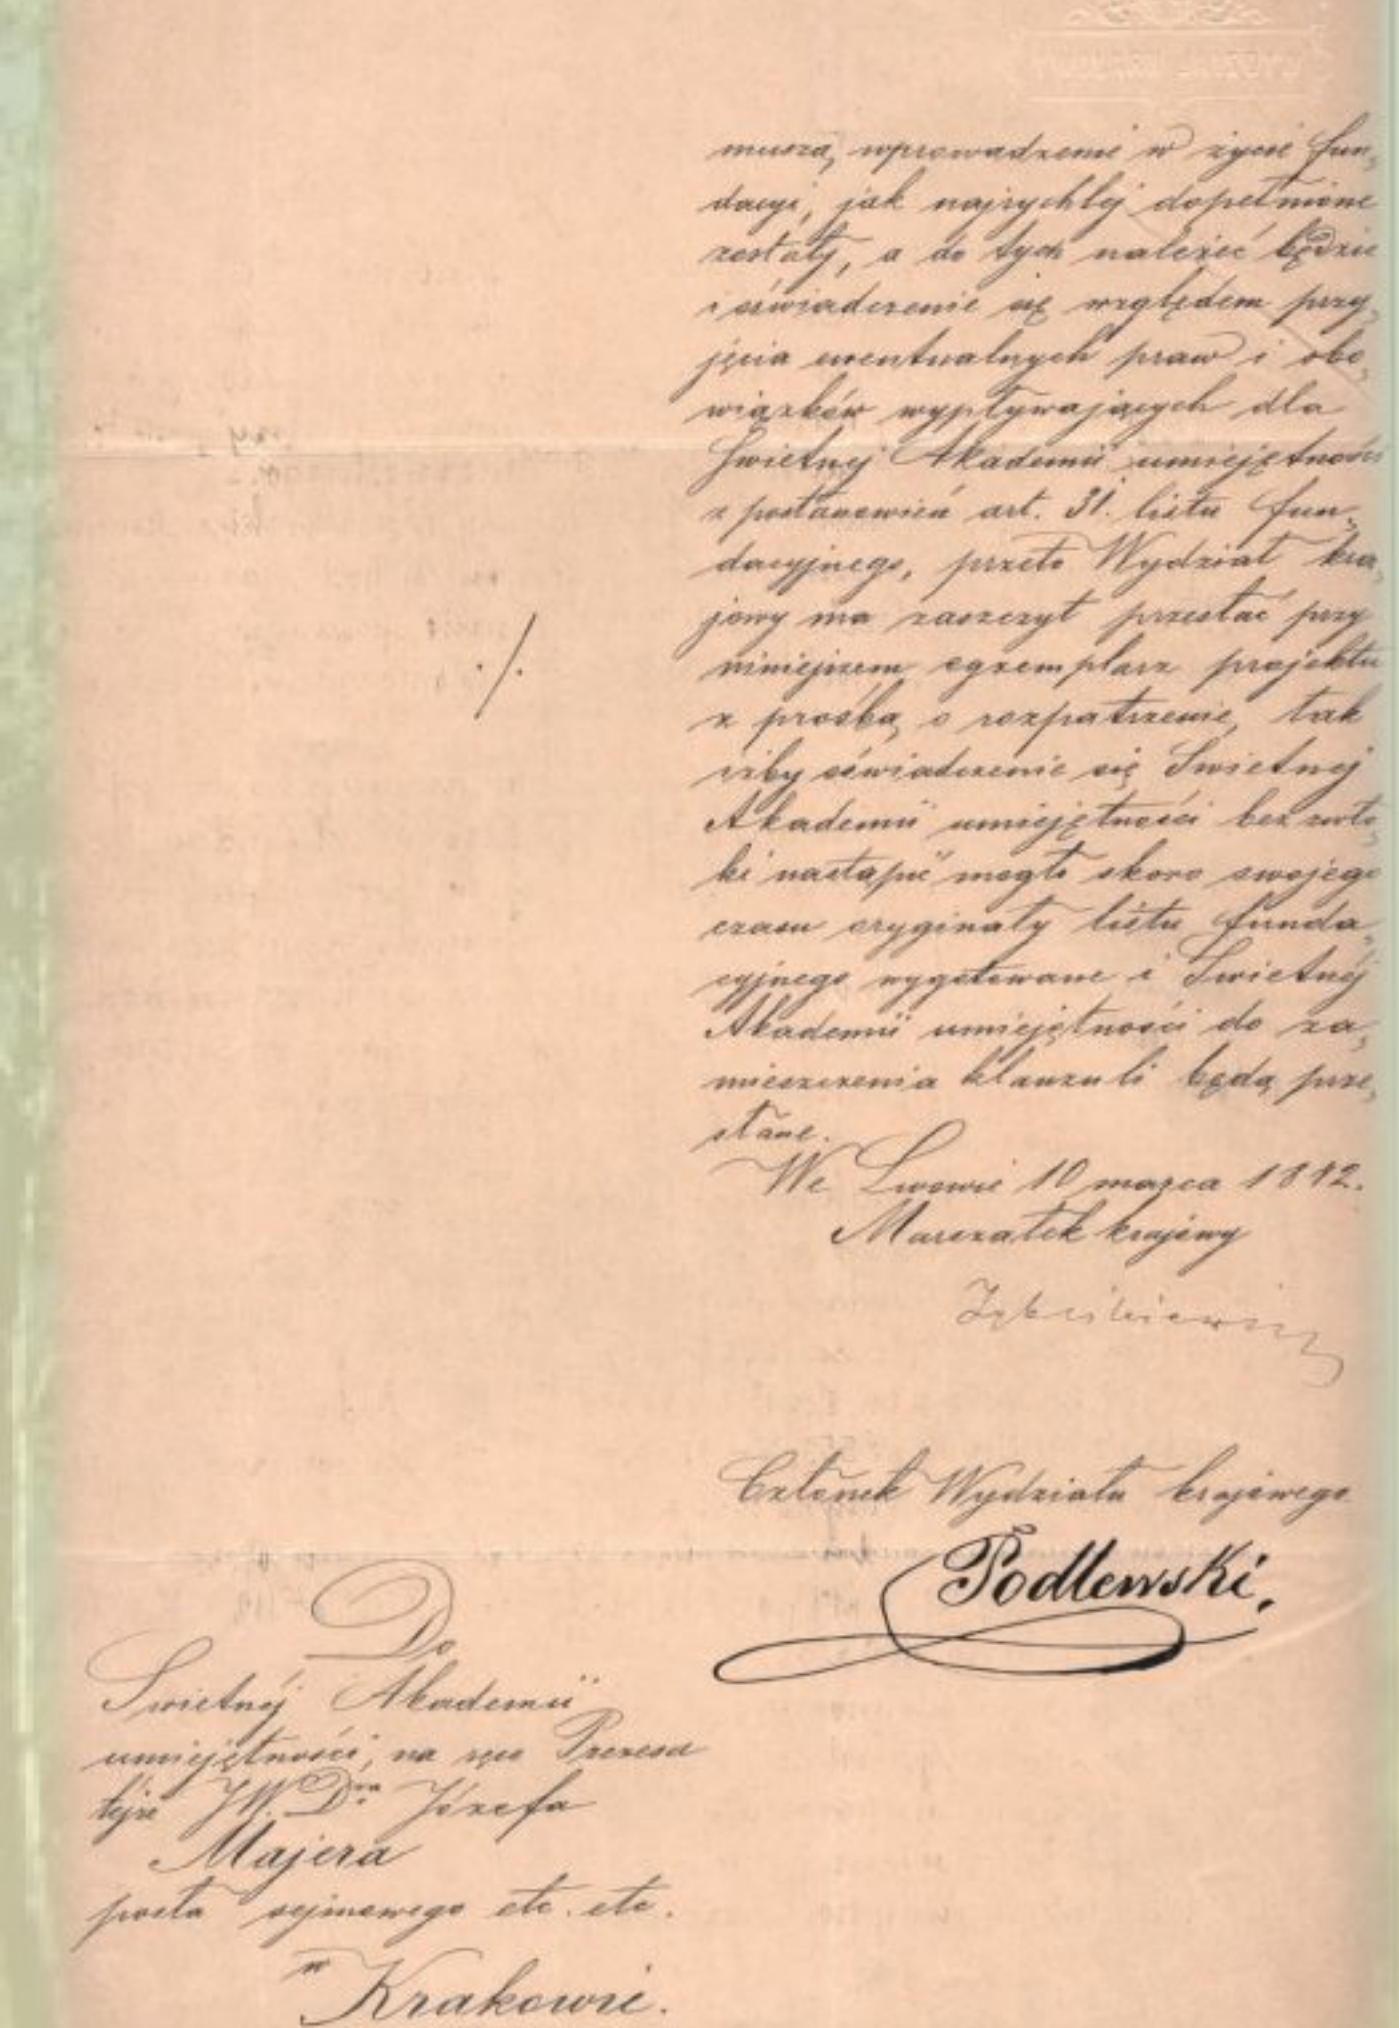 WYDZIAŁ KRAJOWY
muszą, wprowadzenie w życie fun„
dacyi, jak najrychléj dopełnione
zostały, a do tych należeć będzie
i oświadczenie się względem przy„
jęcia ewentualnych praw i obo„
wiązków wypływających dla
Świetnej Akademii umiejętności
z postanowień art. 31. listu fun„
dacyjnego, przeto Wydział kra„
jowy ma zaszczyt przesłać przy
niniejszem egzemplarz projektu
z prośbą o rozpatrzenie, tak
iżby oświadczenie się Swietnej
Akademii umiejętności bez zwło„
ki nastąpić mogło skoro swojego
czasu oryginały listu funda„
cyjnego wygotowane i Swietnéj
Akademii umiejętności do za„
mieszczenia klauzuli będą prze„
słane.
We Lwowie 10 marca 1882.
Marszałek krajowy
Zyblikiewicz
./.
Członek Wydziału krajowego
Podlewski.
Do
Swietnéj Akademii
umiejętności, na ręce Prezesa
tejże JW. Dra Józefa
Majera
posła sejmowego etc. etc.
w Krakowie.